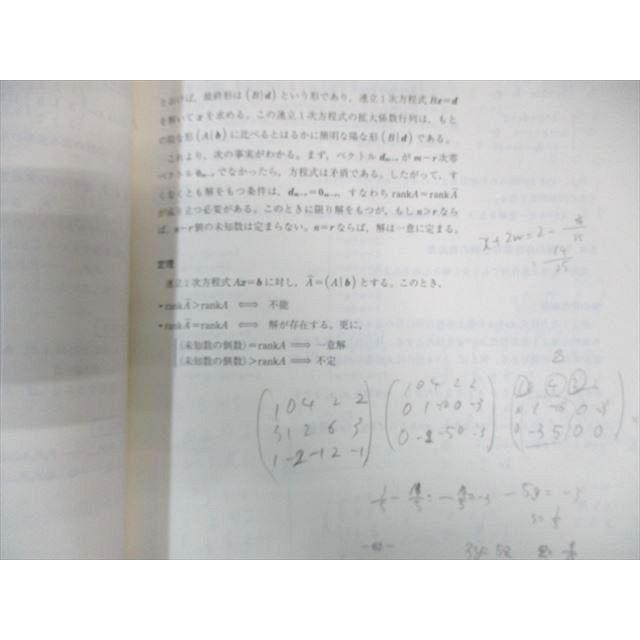 とおけば，最終形は (B|d) という形であり，連立1次方程式 Bx=d
を解いて x を求める。この連立1次方程式の拡大係数行列は，もと
の陰な形 (A|b) に比べるとはるかに簡明な陽な形 (B|d) である。
これより，次の事実がわかる。まず，ベクトル dₘ₋ᵣ が m−r 次零
ベクトル 0ₘ₋ᵣ でなかったら，方程式は矛盾である。したがって，す
くなくとも解をもつ条件は，dₘ₋ᵣ=0ₘ₋ᵣ，すなわち rankA=rankÃ
が成り立つ必要がある。このときに限り解をもつが，もし n>r なら
ば，n−r 個の未知数は定まらない。n=r ならば，解は一意に定まる。
x+2w=2-
14
25
定理
連立1次方程式 Ax=b に対し，Ã=(A|b) とする。このとき，
・rankÃ>rankA ⟺ 不能
・rankÃ=rankA ⟺ 解が存在する。更に，
(未知数の個数)=rankA ⟹ 一意解
(未知数の個数)>rankA ⟹ 不定
1 0 4 2 2
3 1 2 6 3
1 -2 -1 2 -1
1 0 4 2 2
0 1 -10 0 -3
0 -2 -5 0 -3
0 -3 5 0 0